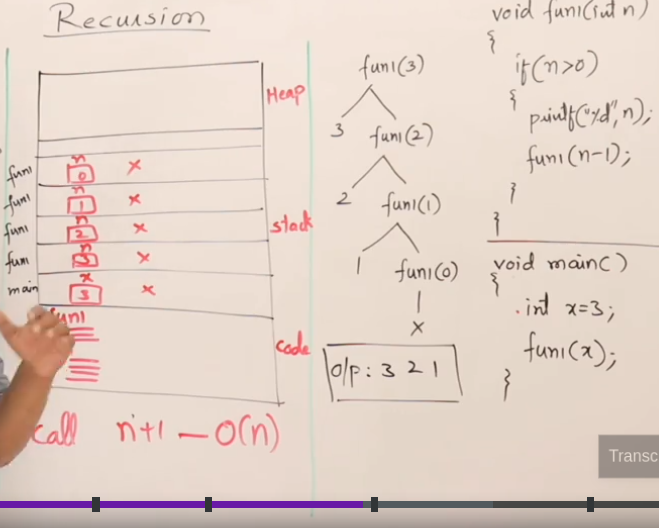 Recursion
Heap
fun1
n
0
x
fun1
n
1
x
fun1
n
2
x
stack
fun1
n
3
x
main
x
3
x
fun1
code
call n+1 — O(n)
fun1(3)
3 fun1(2)
2 fun1(1)
1 fun1(0)
x
o/p: 3 2 1
void fun1(int n)
{
if(n>0)
{
printf("%d", n);
fun1(n-1);
}
}
void main()
{
int x=3;
fun1(x);
}
Transc